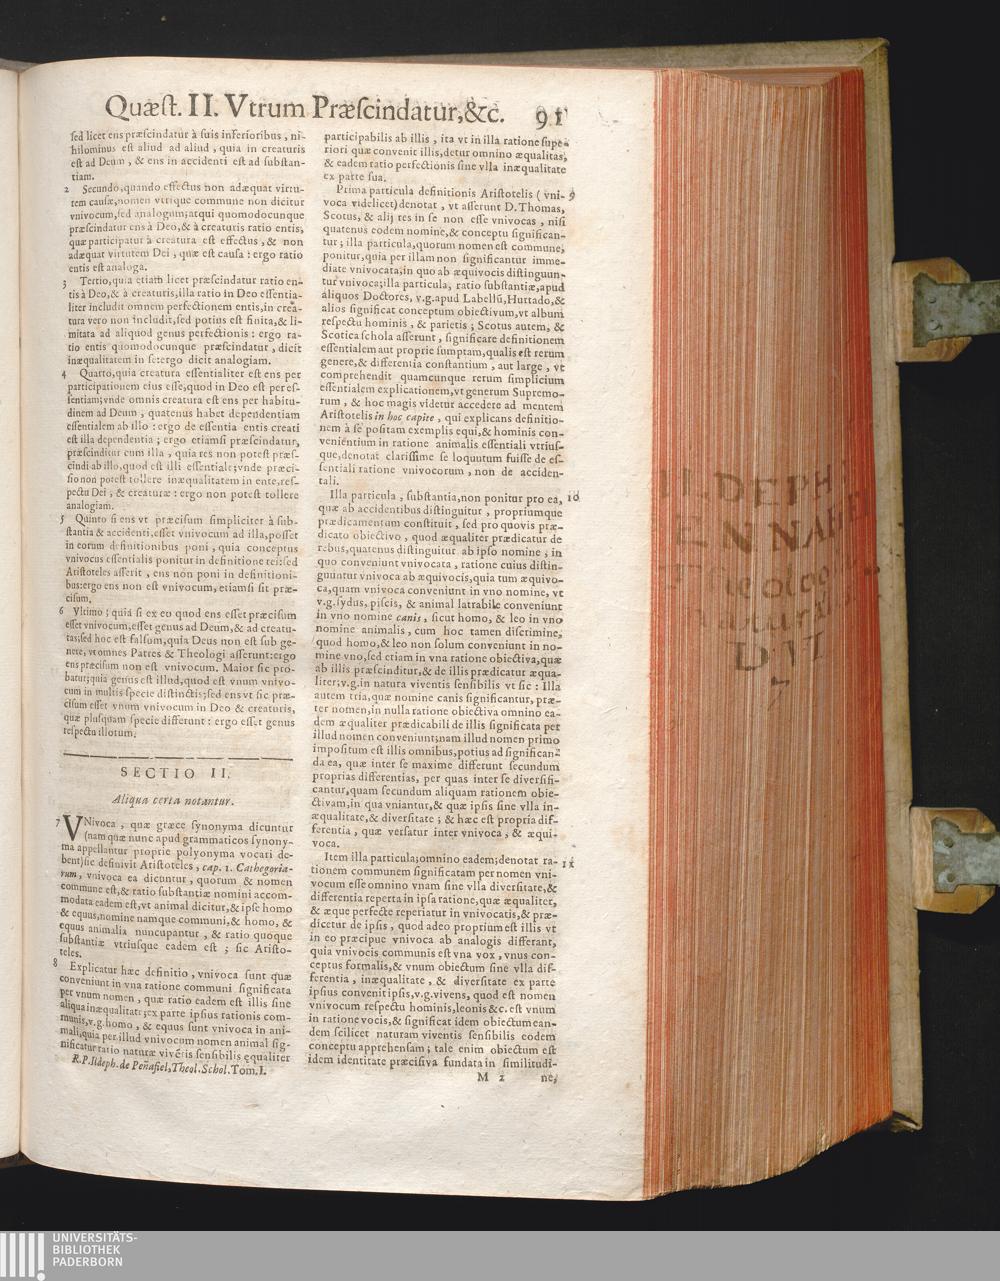 Quæst. II. Vtrum Præscindatur,&c. 91
sed licet ens præscindatur à suis inferioribus, ni-
hilominus est aliud ad aliud, quia in creaturis
est ad Deum, & ens in accidenti est ad substan-
tiam.
2 Secundo,quando effectus non adæquat virtu-
tem causæ,nomen vtrique commune non dicitur
vnivocum,sed analogum;atqui quomodocunque
præscindatur ens à Deo,& à creaturis ratio entis,
quæ participatur à creatura est effectus, & non
adæquat virtutem Dei, quæ est causa : ergo ratio
entis est analoga.
3 Tertio,quia etiam licet præscindatur ratio en-
tis à Deo,& à creaturis,illa ratio in Deo essentia-
liter includit omnem perfectionem entis,in crea-
tura vero non includit,sed potius est finita,& li-
mitata ad aliquod genus perfectionis : ergo ra-
tio entis quomodocunque præscindatur, dicit
inæqualitatem in se:ergo dicit analogiam.
4 Quarto,quia creatura essentialiter est ens per
participationem eius esse,quod in Deo est per es-
sentiam;vnde omnis creatura est ens per habitu-
dinem ad Deum, quatenus habet dependentiam
essentialem ab illo : ergo de essentia entis creati
est illa dependentia ; ergo etiamsi præscindatur,
præscinditur cum illa, quia res non potest præs-
cindi ab illo,quod est illi essentiale;vnde præci-
sio non potest tollere inæqualitatem in ente,res-
pectu Dei, & creaturæ : ergo non potest tollere
analogiam.
5 Quinto si ens vt præcisum simpliciter à sub-
stantia & accidenti,esset vnivocum ad illa,posset
in eorum definitionibus poni, quia conceptus
vnivocus essentialis ponitur in definitione rei:sed
Aristoteles asserit, ens non poni in definitioni-
bus:ergo ens non est vnivocum,etiamsi sit præ-
cisum.
6 Vltimo ; quia si ex eo quod ens esset præcisum
esset vnivocum,esset genus ad Deum,& ad creatu-
ras;sed hoc est falsum,quia Deus non est sub ge-
nere, vt omnes Patres & Theologi asserunt:ergo
ens præcisum non est vnivocum. Maior sic pro-
batur;quia genus est illud,quod est vnum vnivo-
cum in multis specie distinctis;sed ens vt sic præ-
cisum esset vnum vnivocum in Deo & creaturis,
quæ plusquam specie differunt : ergo esset genus
respectu illorum.
SECTIO II.
Aliqua certa notantur.
7 VNivoca, quæ græce synonyma dicuntur
(nam quæ nunc apud grammaticos synony-
ma appellantur proprie polyonyma vocari de-
bent)sic definivit Aristoteles, cap. 1. Cathegoria-
rum, vnivoca ea dicuntur, quorum & nomen
commune est,& ratio substantiæ nomini accom-
modata eadem est,vt animal dicitur,& ipse homo
& equus,nomine namque communi,& homo, &
equus animalia nuncupantur, & ratio quoque
substantiæ vtriusque eadem est ; sic Aristo-
teles.
8 Explicatur hæc definitio, vnivoca sunt quæ
conveniunt in vna ratione communi significata
per vnum nomen, quæ ratio eadem est illis sine
aliqua inæqualitate;ex parte ipsius rationis com-
munis,v.g.homo, & equus sunt vnivoca in ani-
mali,quia per illud vnivocum nomen animal sig-
nificatur ratio naturæ viventis sensibilis equaliter
R.P.Ildeph.de Peñafiel,Theol.Schol.Tom.I.
participabilis ab illis, ita vt in illa ratione supe-
riori quæ convenit illis,detur omnino æqualitas,
& eadem ratio perfectionis sine vlla inæqualitate
ex parte sua.
Prima particula definitionis Aristotelis ( vni- 9
voca videlicet) denotat, vt asserunt D.Thomas,
Scotus, & alij res in se non esse vnivocas, nisi
quatenus eodem nomine,& conceptu significan-
tur ; illa particula,quorum nomen est commune,
ponitur,quia per illam non significantur imme-
diate vnivocata,in quo ab æquivocis distinguun-
tur vnivoca;illa particula, ratio substantiæ,apud
aliquos Doctores, v.g.apud Labellũ,Hurtado,&
alios significat conceptum obiectivum,vt album
respectu hominis, & parietis ; Scotus autem, &
Scotica schola asserunt, significare definitionem
essentialem aut proprie sumptam,qualis est rerum
genere,& differentia constantium, aut large, vt
comprehendit quamcunque rerum simplicium
essentialem explicationem,vt generum Supremo-
rum, & hoc magis videtur accedere ad mentem
Aristotelis in hoc capite, qui explicans definitio-
nem à se positam exemplis equi,& hominis con-
venientium in ratione animalis essentiali vtrius-
que,denotat clarissime se loquutum fuisse de es-
sentiali ratione vnivocorum, non de acciden-
tali.
Illa particula, substantia,non ponitur pro ea, 10
quæ ab accidentibus distinguitur, propriumque
prædicamentum constituit, sed pro quovis præ-
dicato obiectivo, quod æqualiter prædicatur de
rebus,quatenus distinguitur ab ipso nomine ; in
quo conveniunt vnivocata, ratione cuius distin-
guuntur vnivoca ab æquivocis,quia tum æquivo-
ca,quam vnivoca conveniunt in vno nomine, vt
v.g.sydus, piscis, & animal latrabile conveniunt
in vno nomine canis, sicut homo, & leo in vno
nomine animalis, cum hoc tamen discrimine,
quod homo,& leo non solum conveniunt in no-
mine vno,sed etiam in vna ratione obiectiva,quæ
ab illis præscinditur,& de illis prædicatur æqua-
liter;v.g.in natura viventis sensibilis vt sic : Illa
autem tria,quæ nomine canis significantur, præ-
ter nomen,in nulla ratione obiectiva omnino ea-
dem æqualiter prædicabili de illis significata per
illud nomen conveniunt;nam illud nomen primo
impositum est illis omnibus,potius ad significan-
da ea, quæ inter se maxime differunt secundum
proprias differentias, per quas inter se diversifi-
cantur,quam secundum aliquam rationem obie-
ctivam,in qua vniantur,& quæ ipsis sine vlla in-
æqualitate,& diversitate ; & hæc est propria dif-
ferentia, quæ versatur inter vnivoca ; & æqui-
voca.
Item illa particula;omnino eadem;denotat ra- 11
tionem communem significatam per nomen vni-
vocum esse omnino vnam sine vlla diversitate,&
differentia reperta in ipsa ratione,quæ æqualiter,
& æque perfecte reperiatur in vnivocatis,& præ-
dicetur de ipsis, quod adeo proprium est illis vt
in eo præcipue vnivoca ab analogis differant,
quia vnivocis communis est vna vox, vnus con-
ceptus formalis,& vnum obiectum sine vlla dif-
ferentia, inæqualitate, & diversitate ex parte
ipsius convenit ipsis,v.g.vivens, quod est nomen
vnivocum respectu hominis,leonis &c.est vnum
in ratione vocis,& significat idem obiectum ean-
dem scilicet naturam viventis sensibilis eodem
conceptu apprehensam ; tale enim obiectum est
idem identitate præcisiva fundata in similitudi-
M 2 ne,
ILDEPH.
ENNAFIEL
UNIVERSITÄTS-
BIBLIOTHEK
PADERBORN